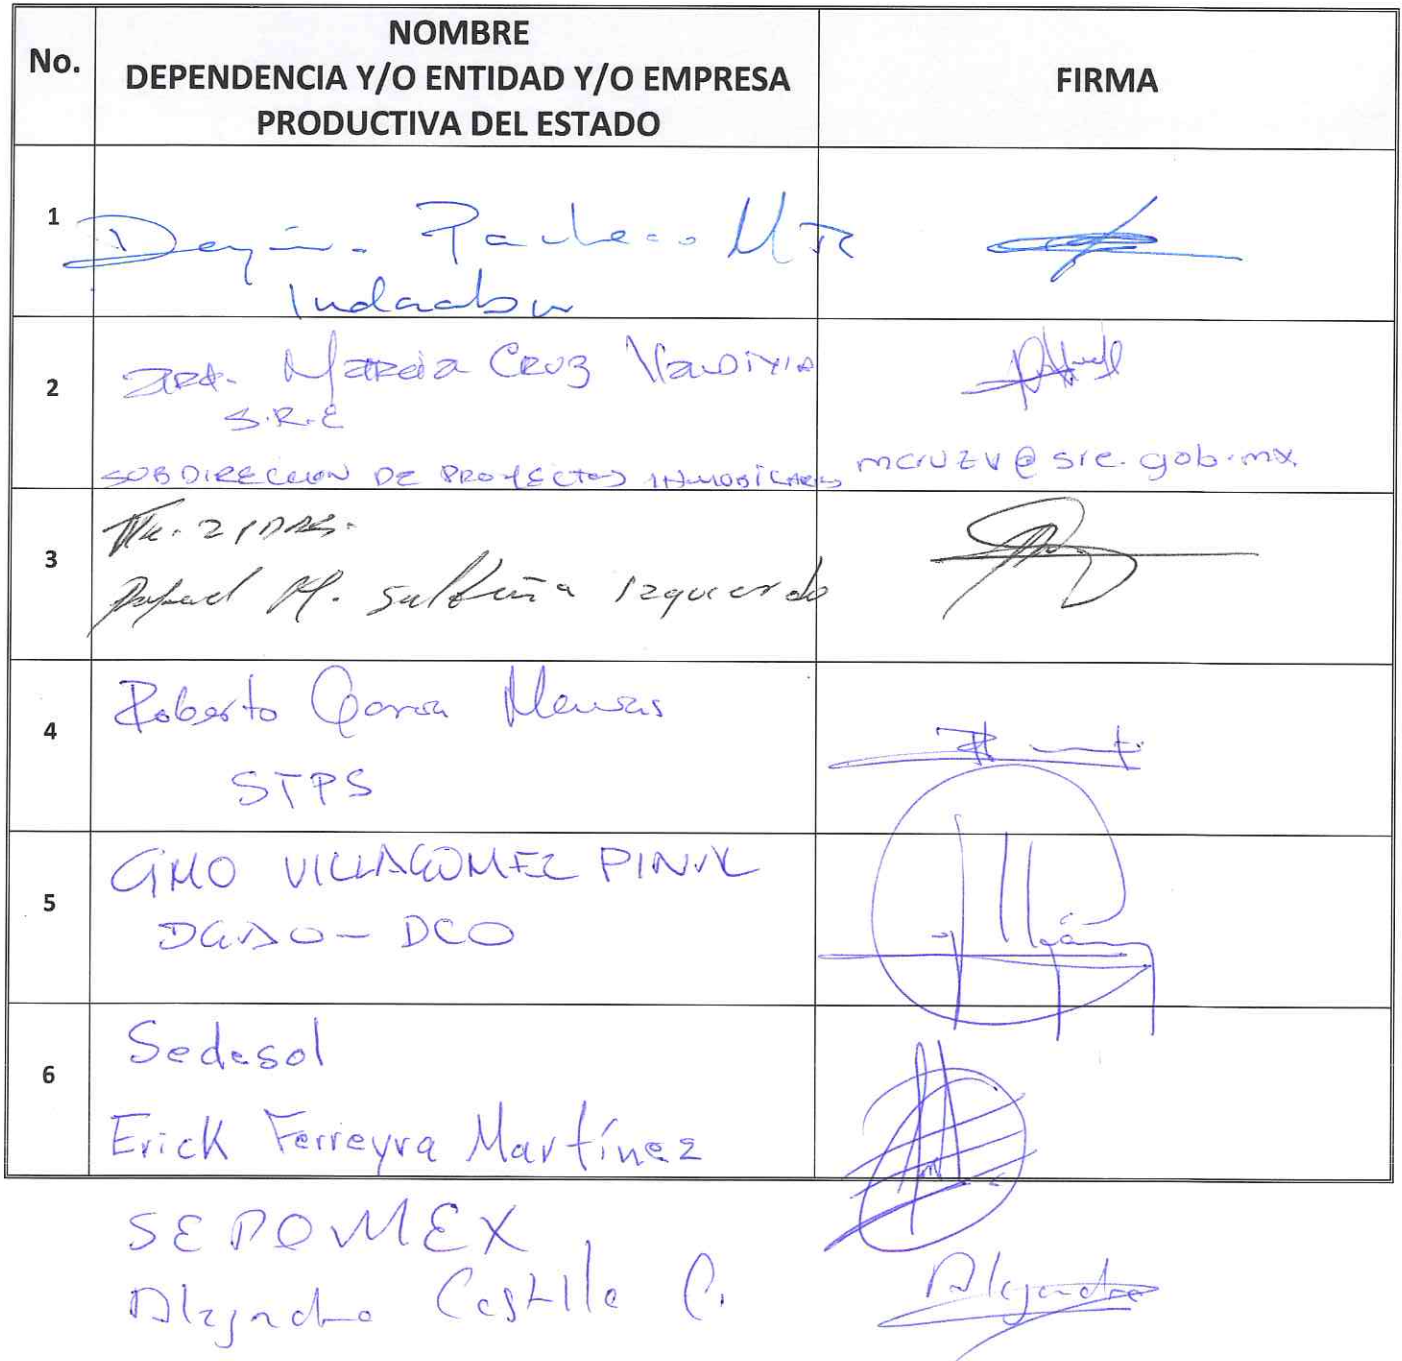 No.
NOMBRE
DEPENDENCIA Y/O ENTIDAD Y/O EMPRESA
PRODUCTIVA DEL ESTADO
FIRMA
1
Pacheco
Indaabin
2
Cruz Valdivia
S.R.E
SUBDIRECCION DE PROYECTOS INMOBILIARIOS
mcruzv@sre.gob.mx
3
Rafael M. Izquierdo
4
Roberto
STPS
5
GMO VILLAGOMEZ
DCO
6
Sedesol
Erick Ferreyra Martínez
SEPOMEX
Alejandro Castillo C.
Alejandro